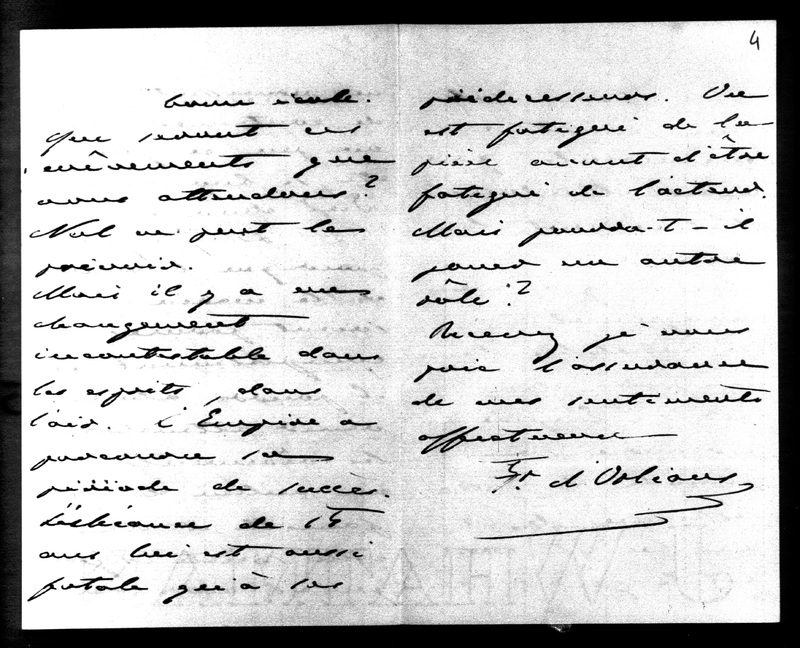 bonne école.
Que seront ces
évènements que
nous attendons?
Nul ne peut les
prévoir.
Mais il y a un
changement
incontestable dans
les esprits, dans
l'air. L'Empire a
parcouru sa
période de succès.
L'échéance de 15
ans lui est aussi
fatale qu'à ses
4
prédécesseurs. On
est fatigué de la
pièce avant d'être
fatigué de l'acteur.
Mais pourra-t-il
jouer un autre
rôle?
Recevez je vous
prie l'assurance
de mes sentiments
affectueux
Fr. d'Orléans